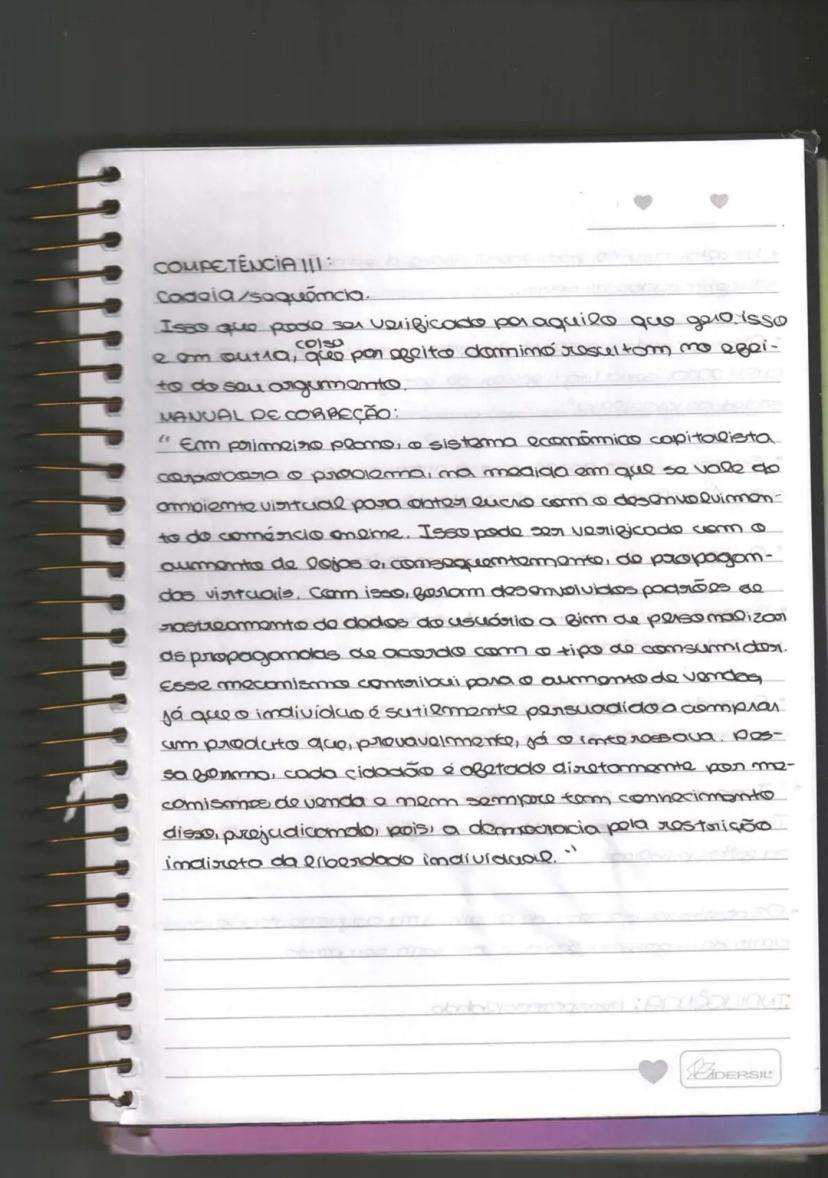 COMPETÊNCIA III:
Cadeia/sequência.
Isso que pode ser verificado por aquilo que gera. Isso
e em outra, coisa que por efeito dominó resultam no efei-
to do seu argumento.
MANUAL DE CORREÇÃO:
" Em primeiro plano, o sistema econômico capitalista
corrobora o problema, na medida em que se vale do
ambiente virtual para obter lucro com o desenvolvimen-
to do comércio online. Isso pode ser verificado com o
aumento de lojas e, consequentemente, de propagan-
das virtuais. Com isso, foram desenvolvidos padrões de
rastreamento de dados do usuário a fim de personalizar
as propagandas de acordo com o tipo de consumidor.
Esse mecanismo contribui para o aumento de vendas,
já que o indivíduo é sutilmente persuadido a comprar
um produto que, provavelmente, já o interessava. Des-
sa forma, cada cidadão é afetado diretamente por me-
canismos de venda e nem sempre tem conhecimento
disso, prejudicando, pois, a democracia pela restrição
indireta da liberdade individual. "
CADERSIL